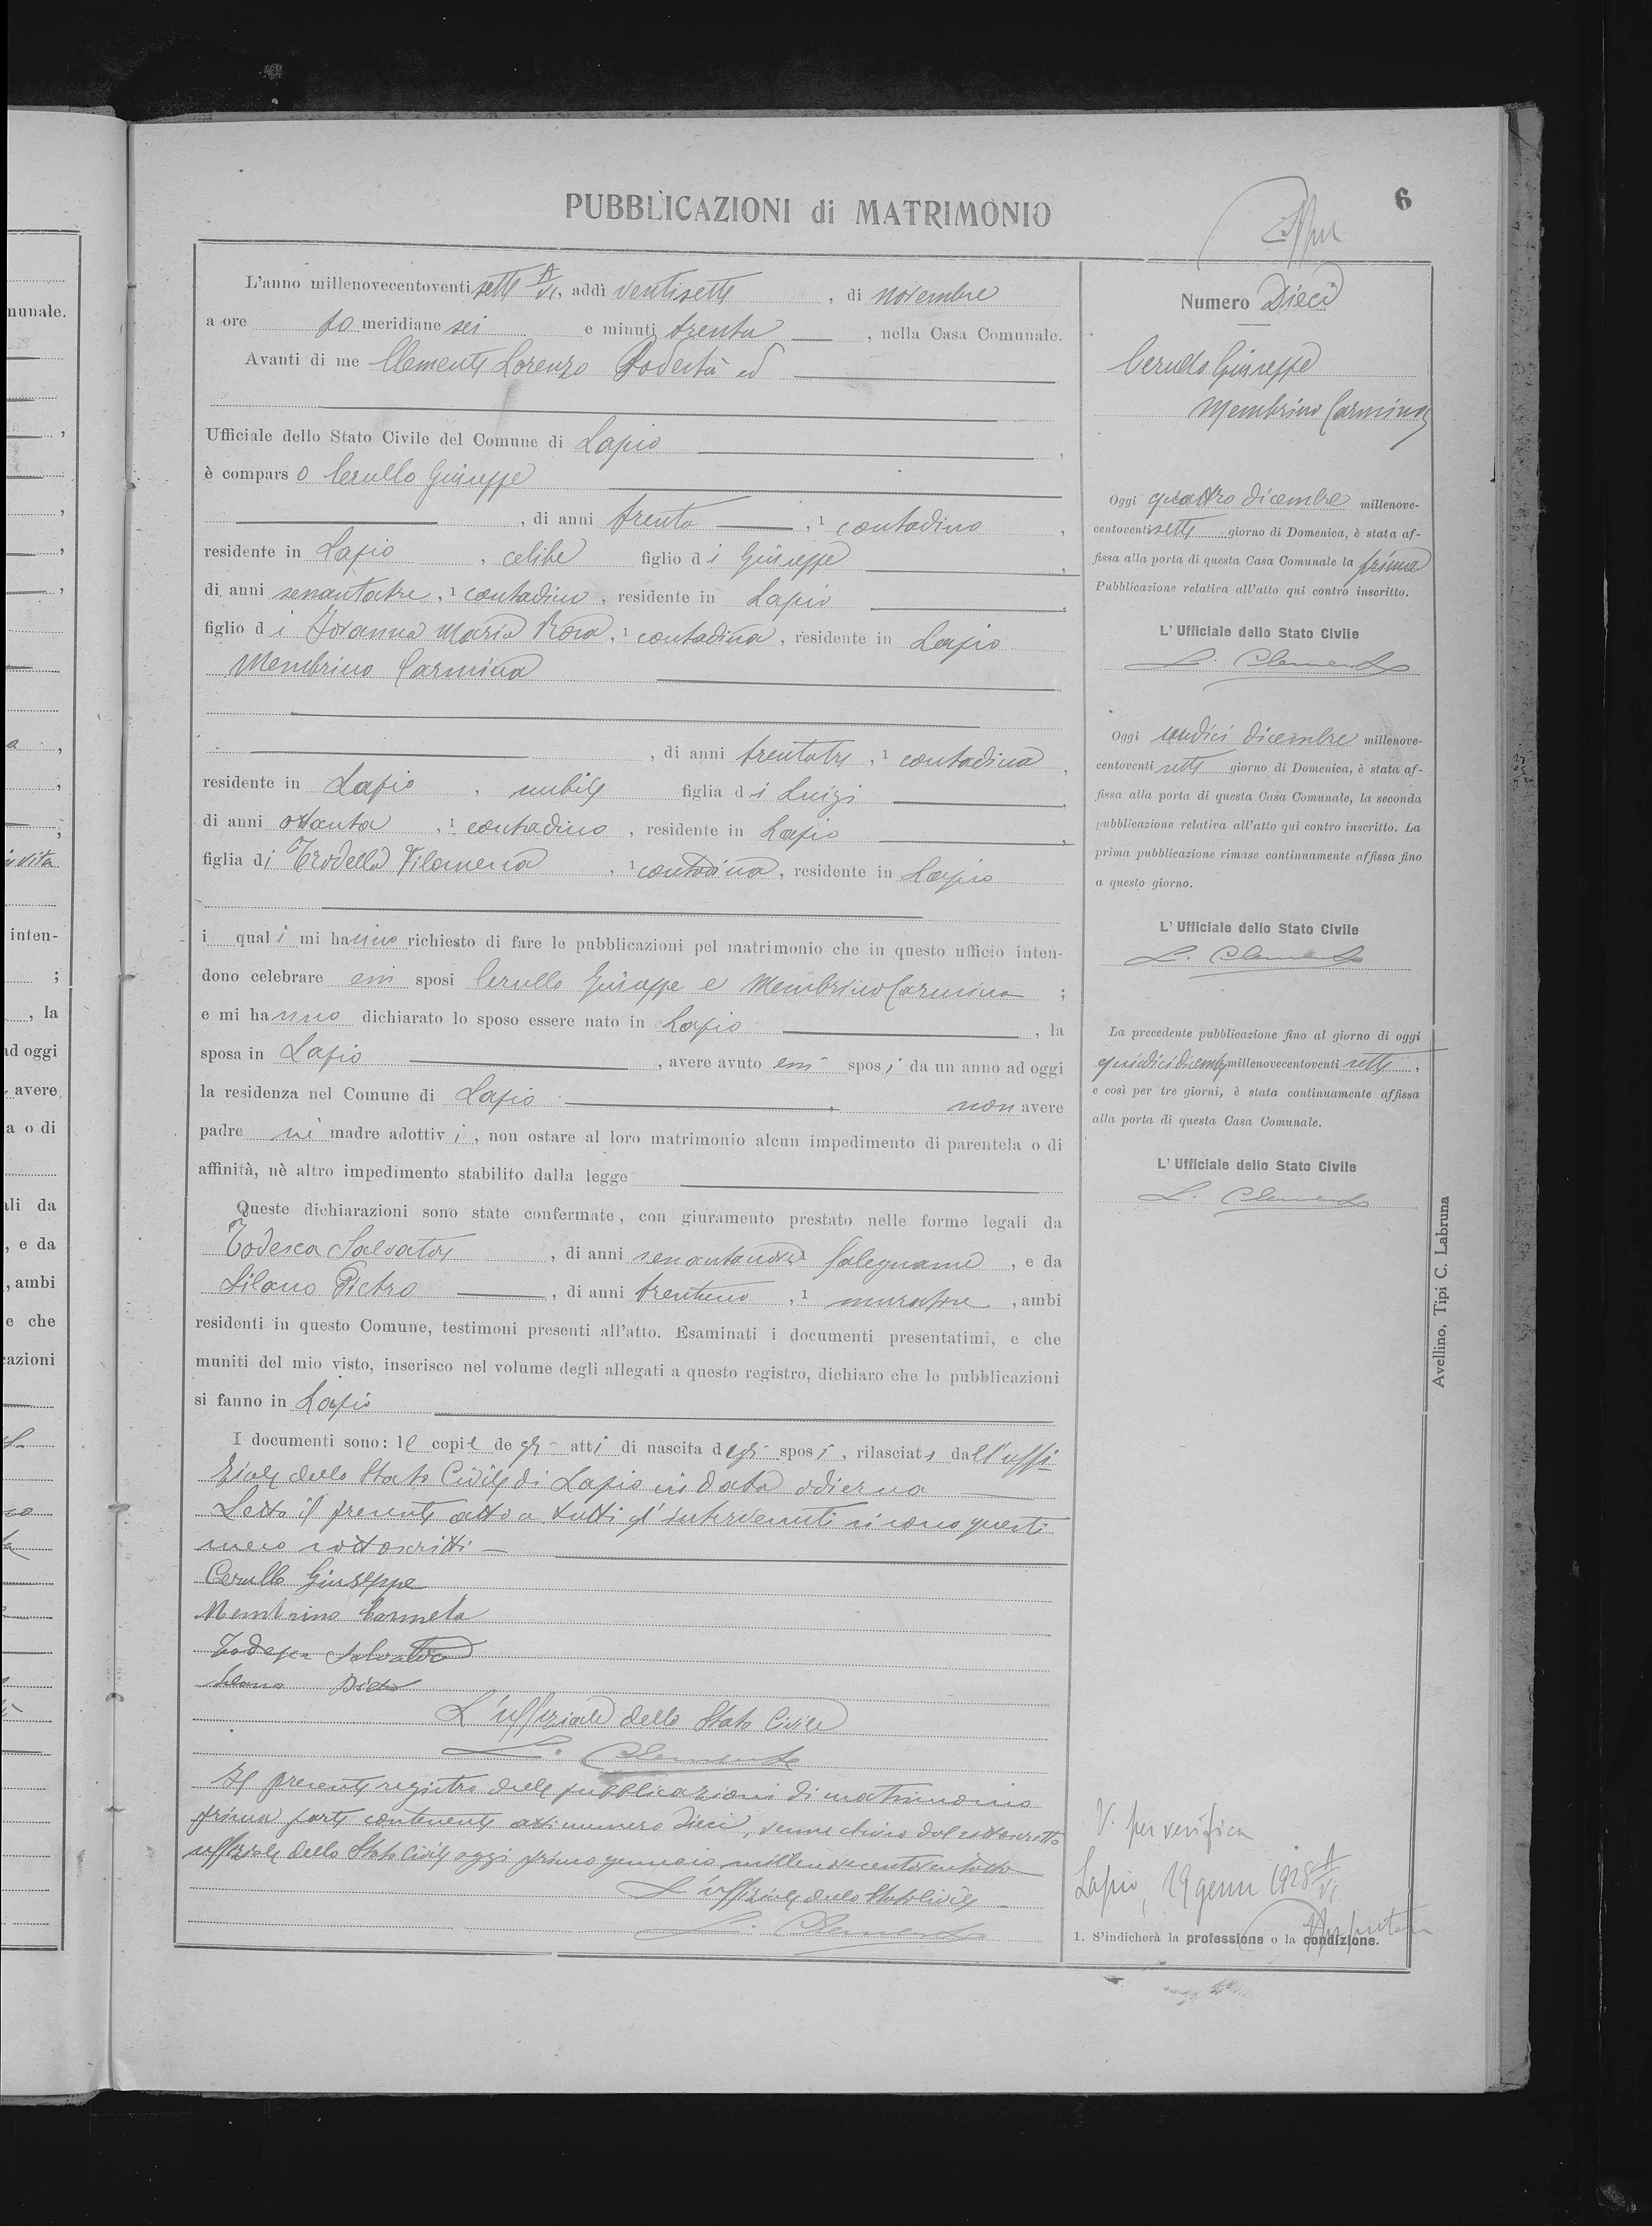 PUBBLICAZIONI di MATRIMONIO
6
L'anno millenovecentoventi sette A VI, addì ventisette, di novembre
a ore po meridiane sei e minuti trenta, nella Casa Comunale.
Avanti di me Clemente Lorenzo Podestà ed
Ufficiale dello Stato Civile del Comune di Lapio,
è compars o Cerullo Giuseppe
, di anni trenta, 1 contadino,
residente in Lapio, celibe figlio d i Giuseppe,
di anni sessantatre, 1 contadino, residente in Lapio,
figlio d i Iovanna Maria Rosa, 1 contadina, residente in Lapio
Membrino Carmina
, di anni trentatre, 1 contadina,
residente in Lapio, nubile figlia d i Luigi,
di anni ottanta, 1 contadino, residente in Lapio,
figlia di Trodella Filomena, 1 contadina, residente in Lapio
i quali mi hanno richiesto di fare le pubblicazioni pel matrimonio che in questo ufficio inten-
dono celebrare essi sposi Cerullo Giuseppe e Membrino Carmina;
e mi hanno dichiarato lo sposo essere nato in Lapio, la
sposa in Lapio, avere avuto essi sposi da un anno ad oggi
la residenza nel Comune di Lapio, non avere
padre nè madre adottivi, non ostare al loro matrimonio alcun impedimento di parentela o di
affinità, nè altro impedimento stabilito dalla legge
Queste dichiarazioni sono state confermate, con giuramento prestato nelle forme legali da
Todesca Salvatore, di anni falegname, e da
Silano Pietro, di anni trentuno, 1 muratore, ambi
residenti in questo Comune, testimoni presenti all'atto. Esaminati i documenti presentatimi, e che
muniti del mio visto, inserisco nel volume degli allegati a questo registro, dichiaro che le pubblicazioni
si fanno in Lapio
I documenti sono: le copie degli atti di nascita degli sposi, rilasciati dall'uffi-
ziale dello Stato Civile di Lapio in data odierna
Letto il presente atto a tutti gl'intervenuti si sono questi
meco sottoscritti -
Cerullo Giuseppe
Membrino Carmela
Todesca Salvatore
Silano Pietro
L'uffiziale dello Stato Civile
L. Clemente
Il presente registro delle pubblicazioni di matrimonio
prima parte contenente atti numero dieci, venne chiuso dal sottoscritto
uffiziale dello Stato Civile oggi primo gennaio millenovecentoventotto
L'uffiziale dello Stato Civile
L. Clemente
Numero Dieci
Cerullo Giuseppe
Membrino Carmina
Oggi quattro dicembre millenove-
centoventisette giorno di Domenica, è stata af-
fissa alla porta di questa Casa Comunale la prima
Pubblicazione relativa all'atto qui contro inscritto.
L'Ufficiale dello Stato Civile
L. Clemente
Oggi undici dicembre millenove-
centoventi sette giorno di Domenica, è stata af-
fissa alla porta di questa Casa Comunale, la seconda
pubblicazione relativa all'atto qui contro inscritto. La
prima pubblicazione rimase continuamente affissa fino
a questo giorno.
L'Ufficiale dello Stato Civile
L. Clemente
La precedente pubblicazione fino al giorno di oggi
quindici dicembre millenovecentoventi sette,
e così per tre giorni, è stata continuamente affissa
alla porta di questa Casa Comunale.
L'Ufficiale dello Stato Civile
L. Clemente
Avellino, Tipi C. Labruna
V. per verifica
Lapio, 19 genn 1928 A VI
1. S'indicherà la professione o la condizione.
munale.
in vita
inten-
;
, la
ad oggi
avere
a o di
ali da
, e da
, ambi
e che
cazioni